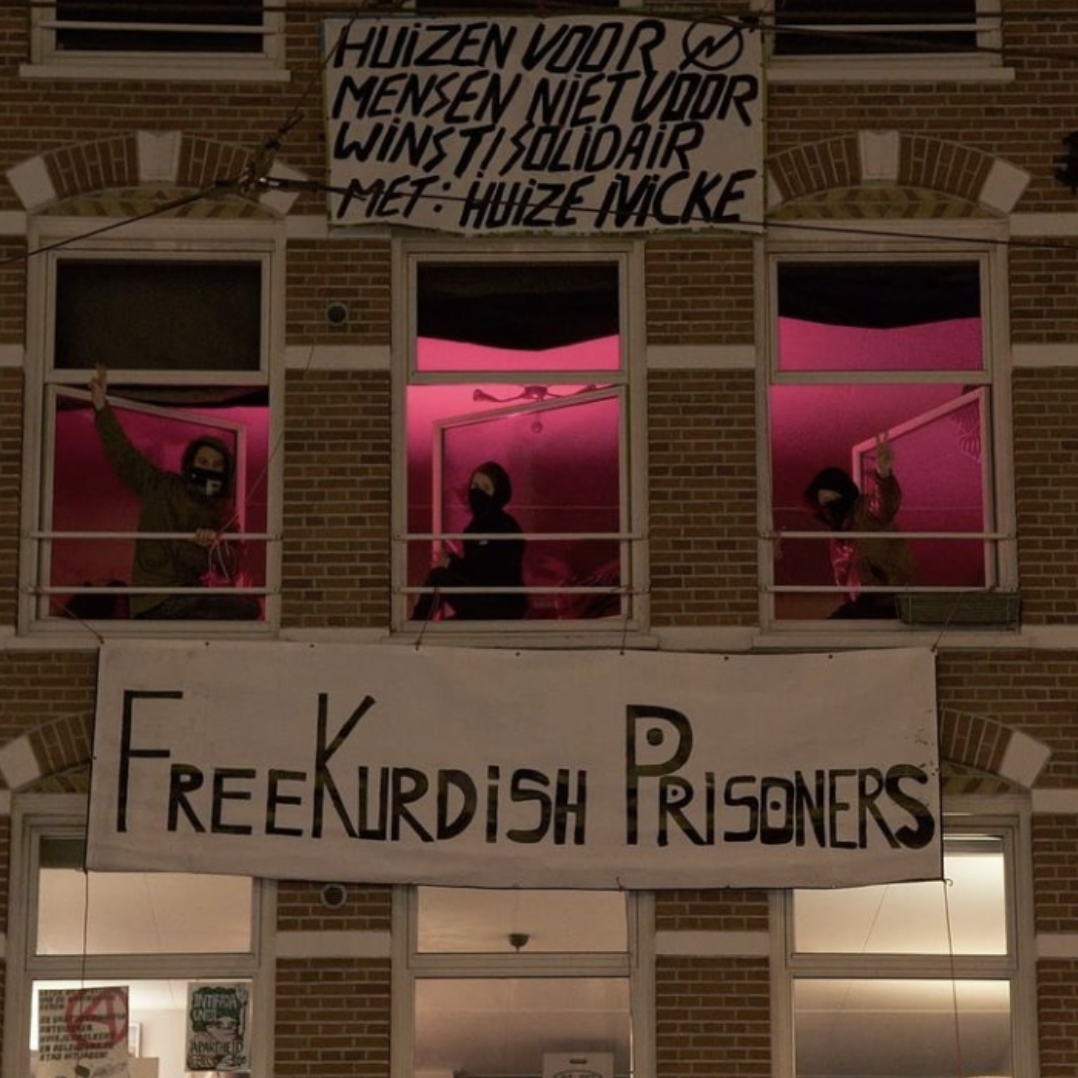 HUIZEN VOOR
MENSEN NIET VOOR
WINST! SOLIDAIR
MET: HUIZE IVICKE
FREE KURDISH PRISONERS
INTIFADA
UNTIL
APARTHEID
FALLS